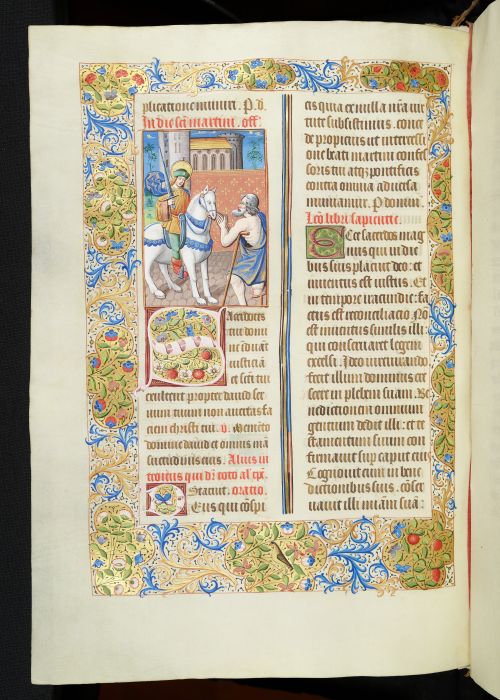 plicatione muniri. P. d.
In die sci martini. off.
Sacerdotes
tui domi
ne iduāt
iusticiā
et sci tui
exultent propter dauid ser
uum tuum non auertas fa
ciem christi tui. v. Memēto
domine dauid et omnis mā
suetudinis eius. Alius in
troitus qui dr̄ toto al. epr.
Statuit. oratio.
Deus qui cōspi
cis quia ex nulla nr̄a uir
tute subsistimus. conce
de propicius ut intercessi
one beati martini confes
soris tui atq3 pontificis
contra omnia aduersa
muniamur. P. dominū.
Lc̄o libri sapientie.
Ecce sacerdos mag
nus qui in die
bus suis placuit deo: et
inuentus est iustus. Et
in tempore iracundie: fac
tus est reconciliacio. Nō
est inuentus similis illi:
qui conseruaret legem
excelsi. Ideo iureiurando
fecit illum dominus cres
cere in plebem suam. Be
nedictionem omnium
gentium dedit illi: et te
stamentum suum con
firmauit sup caput eius
Cognouit eum in bene
dictionibus suis. cōser
uauit illi miām suā: